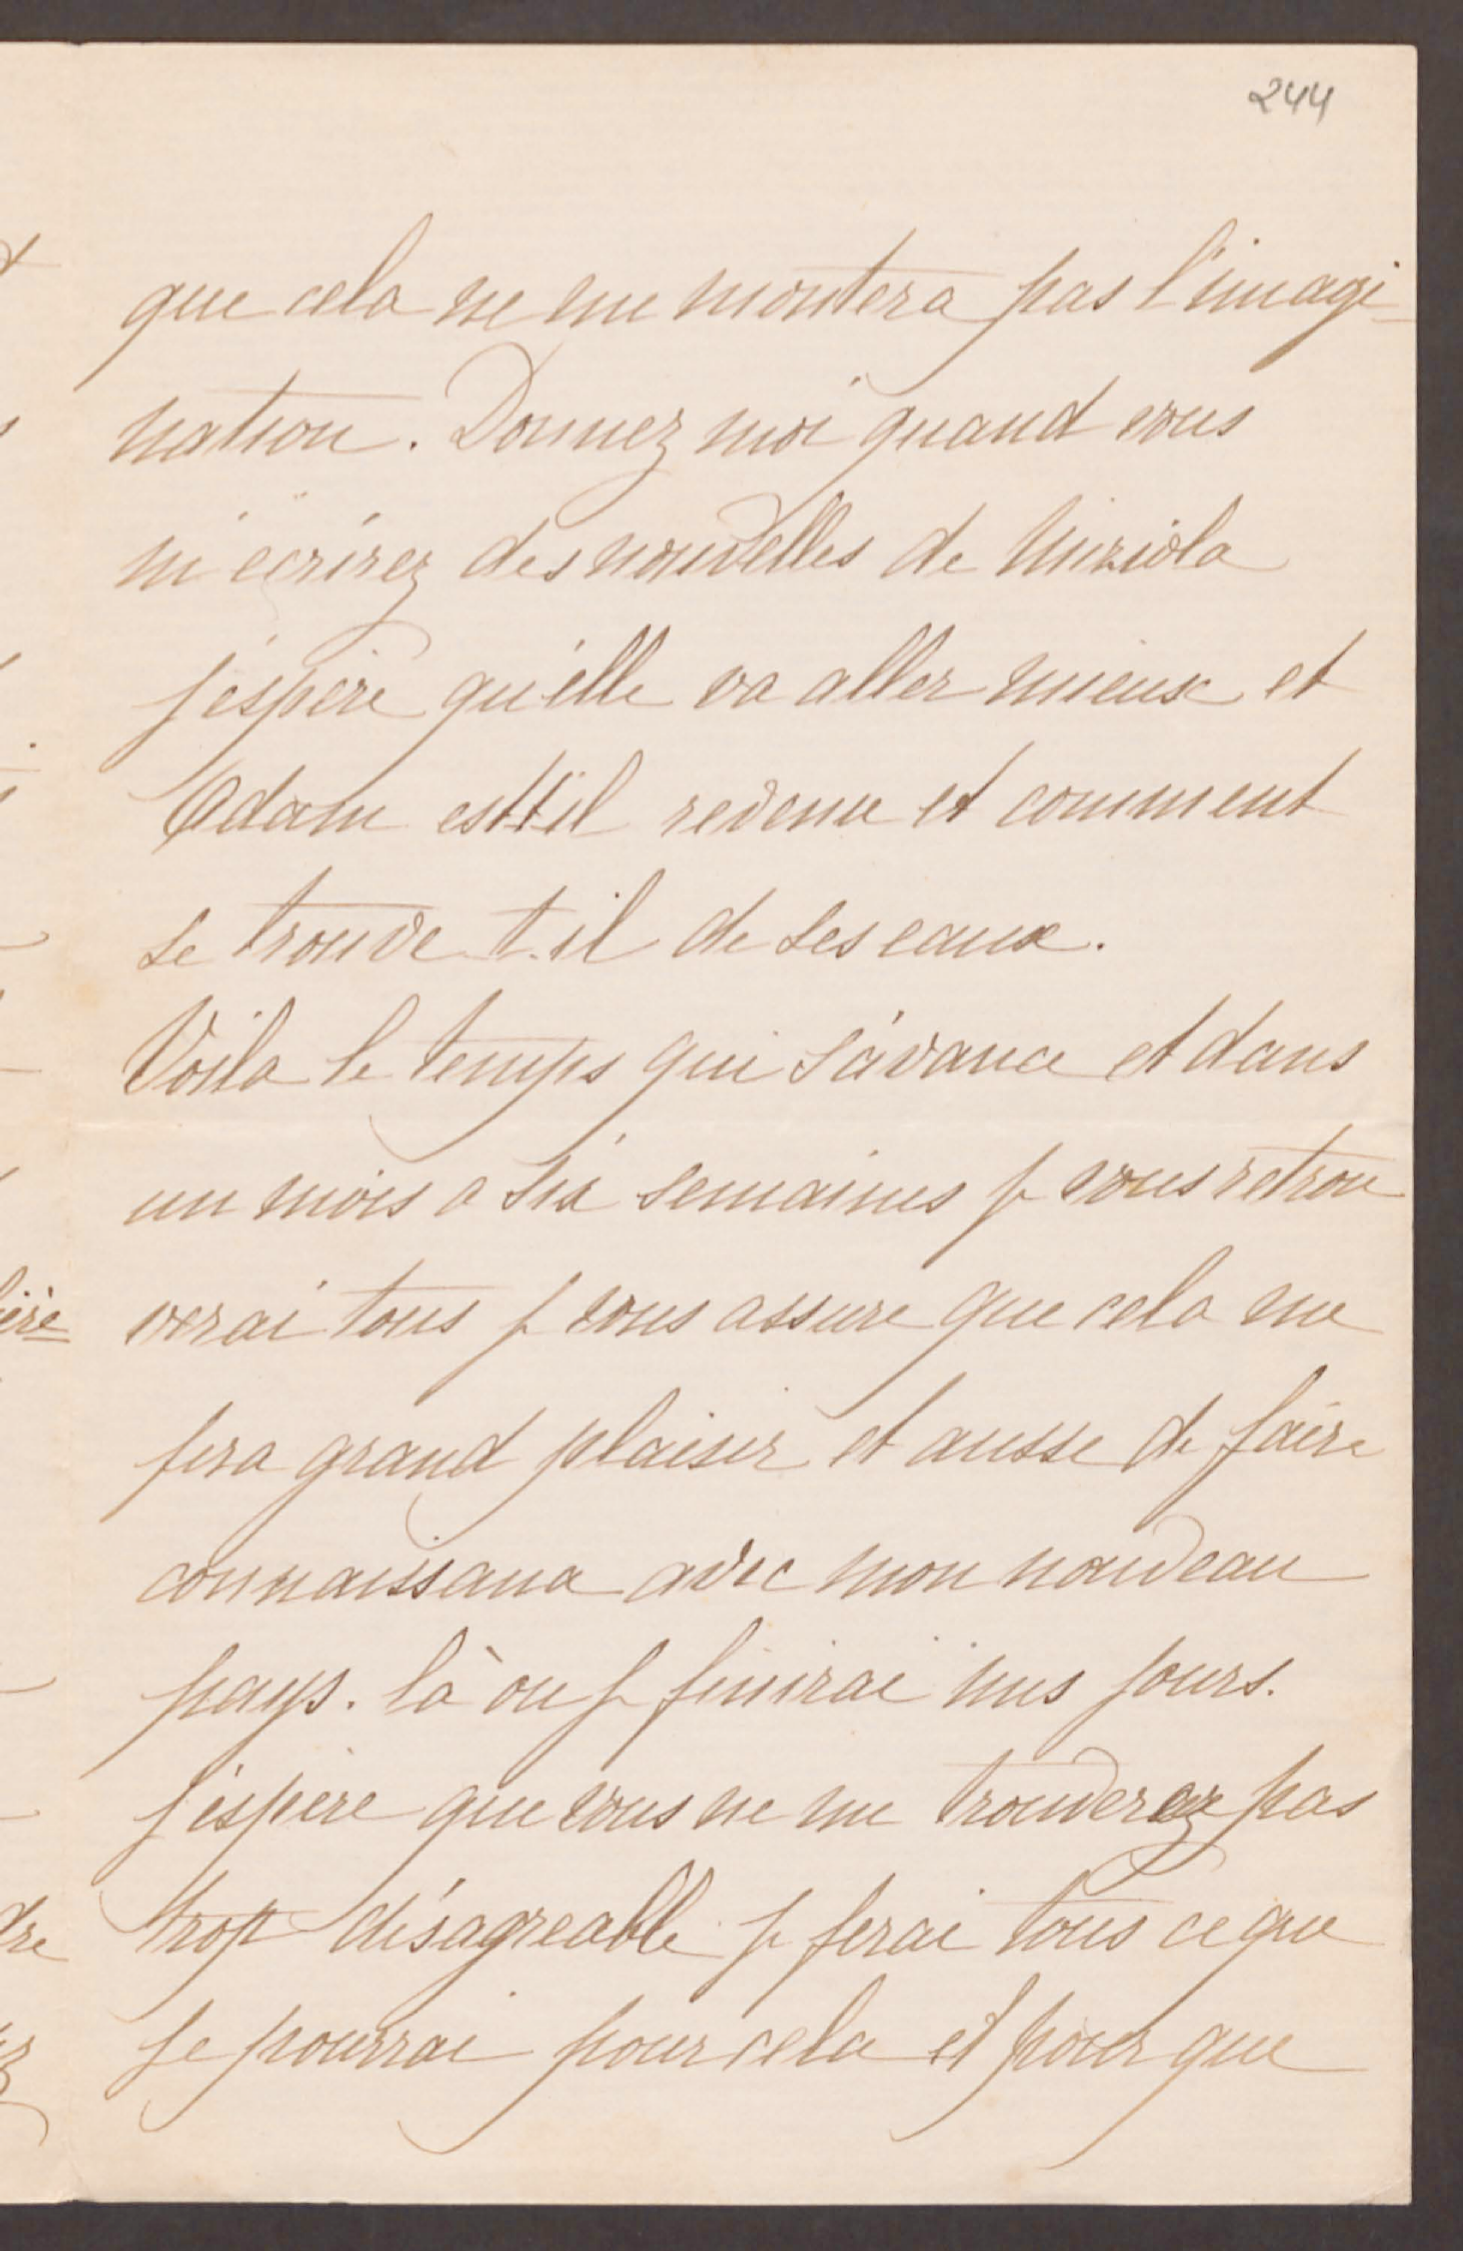 244
que cela ne me montera pas l'imagi-
nation. Donnez moi quand vous
m'écrirez des nouvelles de
j'espère qu'elle va aller mieux et
Adam est t'il revenu et comment
se trouve t.il de ses eaux.
Voila le temps qui s'avance et dans
un mois a six semaines je vous retrou
verai tous je vous assure que cela me
fera grand plaisir et aussi de faire
connaissance avec mon nouveau
pays. là ou je finirai mes jours.
j'espère que vous ne me trouverez pas
trop désagreable je ferai tous ce que
je pourrai pour cela et pour que
ère
dre